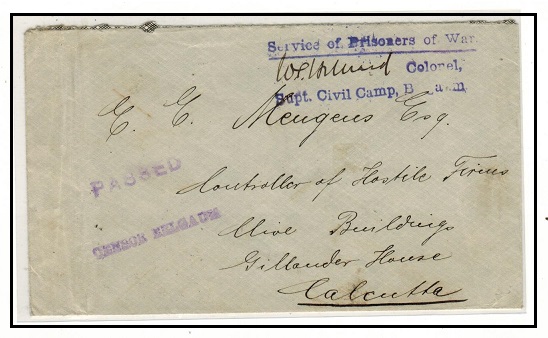 Service of Prisoners of War
Colonel,
Supt. Civil Camp, B a m
C. C. Mengens Esq.
PASSED
Controller of Hostile Firms
CENSOR BELGAUM
Clive Buildings
Gillander House
Calcutta